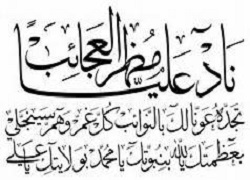 ناد عليا مظهر العجائب
تجده عونا لك بالنوائب كل غم وهم سينجلي
بعظمتك يا الله بنبوتك يا محمد بولايتك يا علي